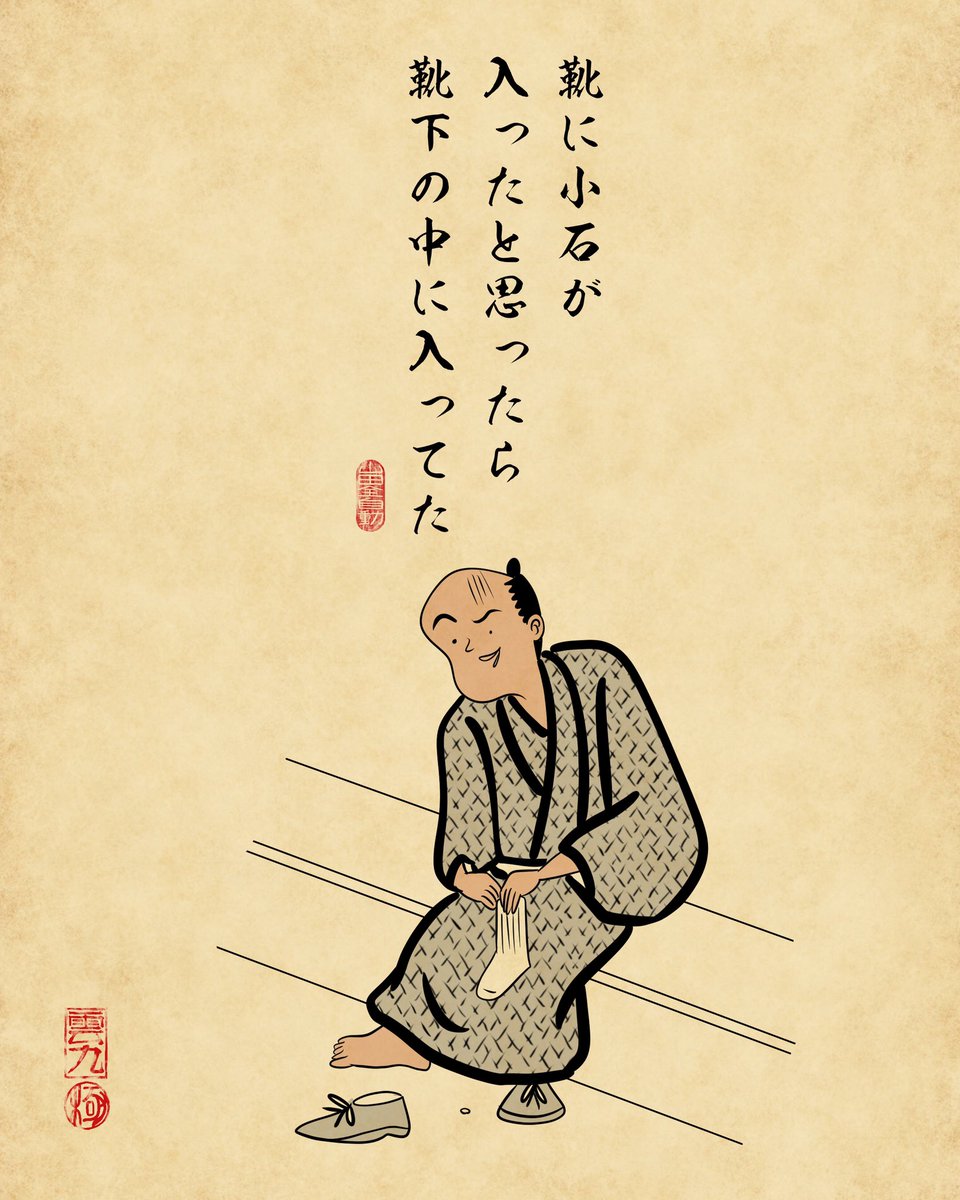 靴に小石が
入ったと思ったら
靴下の中に入ってた